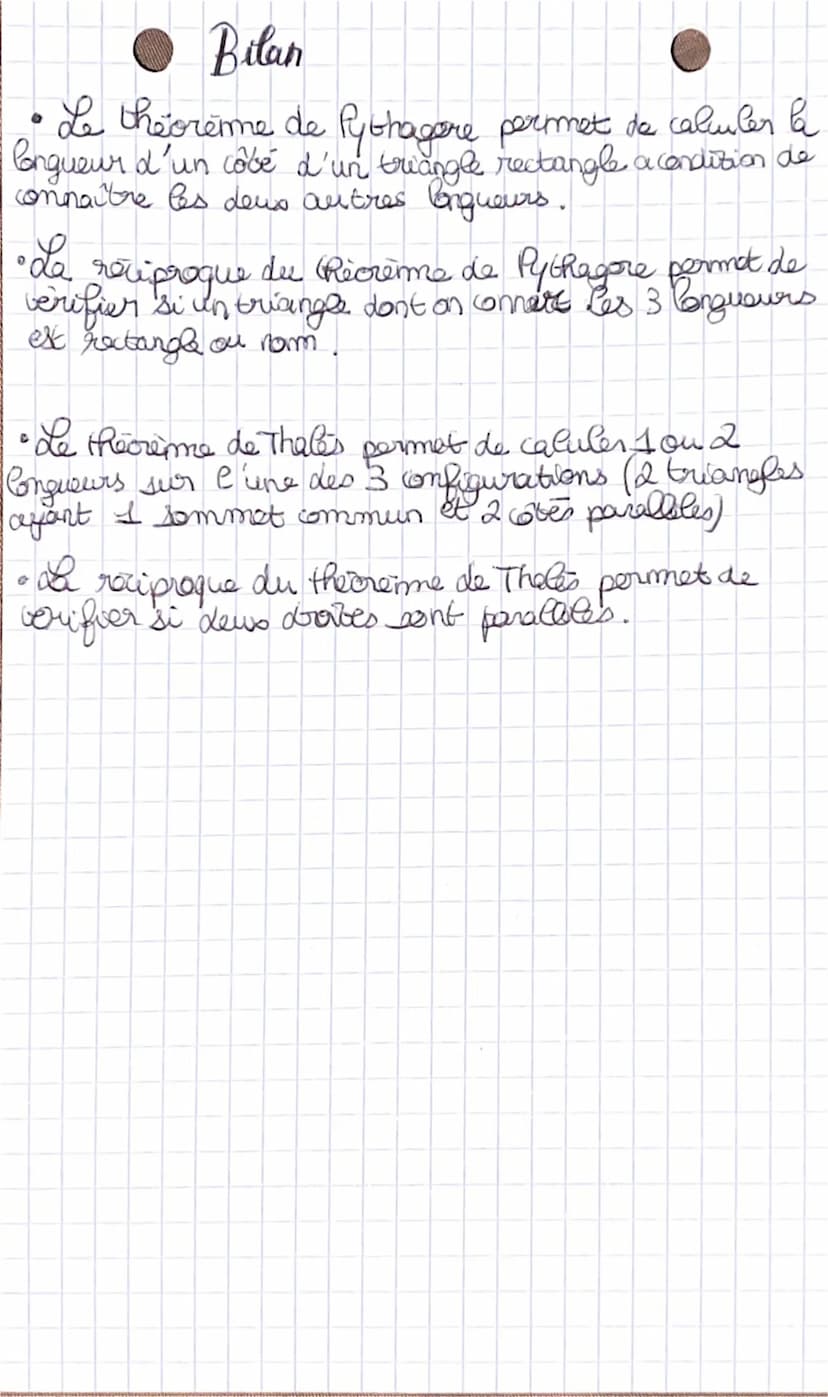 Bilan
• Le théorème de Pythagore permet de calculer la
longueur d'un côté d'un triangle rectangle a condition de
connaître les deux autres longueurs.
• La réciproque du théorème de Pythagore permet de
vérifier si un triangle dont on connait les 3 longueurs
est rectangle ou nom.
• Le théorème de Thalès permet de caluler 1 ou 2
longueurs sur l'une des 3 configurations (2 triangles
ayant 1 sommet commun et 2 côtés parallèles)
• La réciproque du théorème de Thalès permet de
vérifier si deux droites sont parallèles.